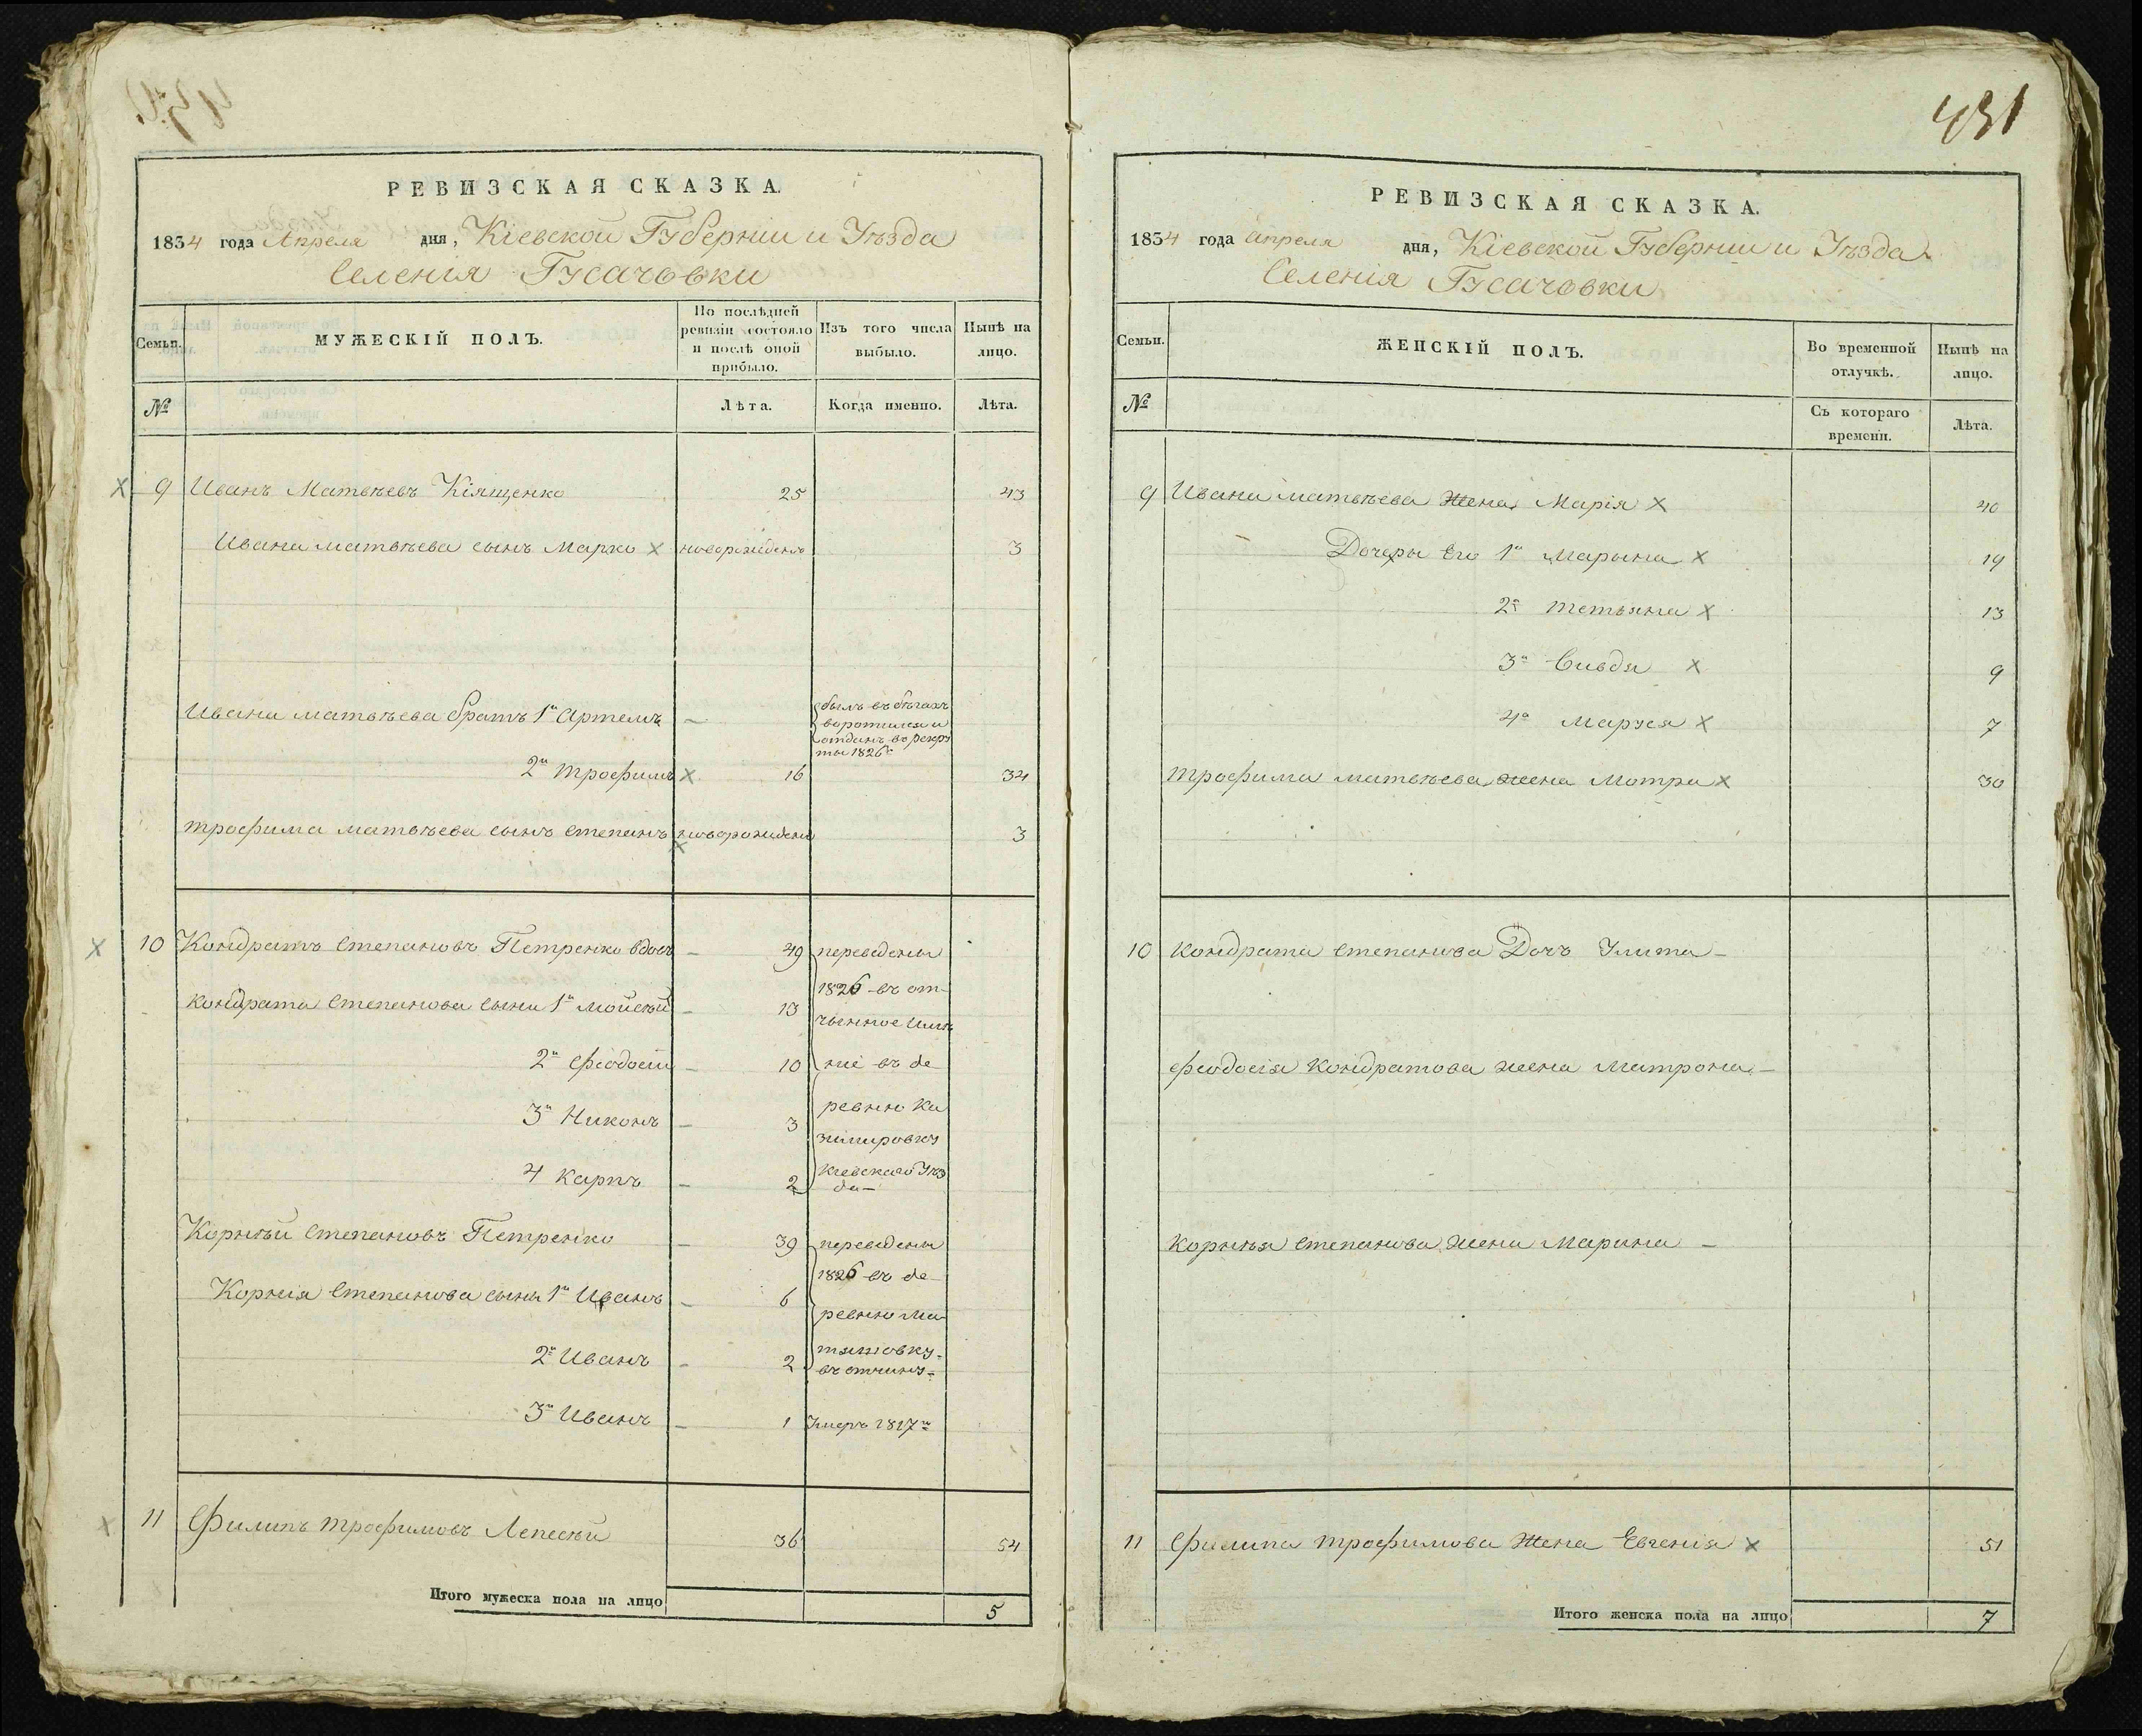 431
РЕВИЗСКАЯ СКАЗКА.
1834 года Апреля дня, Кіевской Губерніи и Уѣзда
Селенія Гусачовки
Семьи.
МУЖЕСКІЙ ПОЛЪ.
По послѣдней ревизіи состояло и послѣ оной прибыло.
Изъ того числа выбыло.
Нынѣ на лицо.
№
Лѣта.
Когда именно.
Лѣта.
9 Иванъ Матвѣевъ Кіященко 25 43
Ивана матвѣева сынъ Марко х новорожденъ 3
Ивана матвѣева братъ 1й Артемъ - былъ въ бѣгахъ
воротился и
отданъ въ рекру
ты 1826
2й трофимъ х 16 34
трофима матвѣева сынъ степанъ новорожденъ 3
х
10 Кондратъ степановъ Петренко - 49 переведены
1826 въ от-
чинное имѣ
кондрата степанова сыни 1й мойсѣй - 13
2й феодосій - 10 ніе въ де
3й Никонъ - 3 ревню Ка
зимировку
4 карпъ - 2 Кіевскаго Уѣз
да -
Корнѣй степановъ Петренко - 39 переведены
1826 въ де-
Корнія степанова сыны 1й Иванъ - 6
ревню Ма
2й Иванъ - 2
въ отчину
3й Иванъ - 1 Умеръ 1817го
11 Филипъ трофимовъ 36 54
Итого мужеска пола на лицо 5
РЕВИЗСКАЯ СКАЗКА.
1834 года апреля дня, Кіевской Губерніи и Уѣзда
Селенія Гусачовки
Семьи.
ЖЕНСКІЙ ПОЛЪ.
Во временной отлучкѣ.
Нынѣ на лицо.
№
Съ котораго времени.
Лѣта.
9 Ивана матвѣева жена Марія х 40
Дочеры Его 1я Марына х 19
2я тетьяна х 13
3я х 9
4я Маруся х 7
трофима матвѣева жена Мотра х 30
10 кондрата степанова Дочъ Улита -
феодосія Кондратова жена Матрона -
Корнѣя степанова жена Марина -
11 филипа трофимова жена Евгенія х 51
Итого женска пола на лицо 7